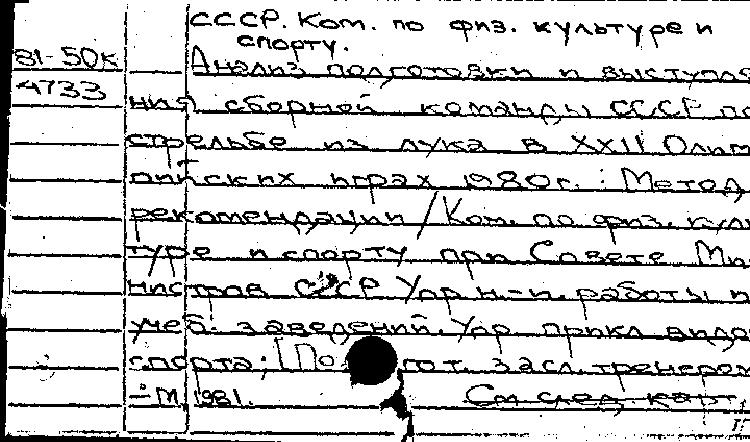 СССР. Ком. по физ. культуре и
спорту.
81-50к Анализ подготовки и выступле
4733 ния сборной команды СССР по
стрельбе из лука в XXII Олим
пийских играх 1980г. : Метод.
рекомендации / Ком. по физ. куль
туре и спорту при Совете Ми
нистров СССР Упр н.-и. работы и
учеб. заведений. Упр прикл видов
спорта; [По гот. засл. тренером
- М 1981. См след. карт.